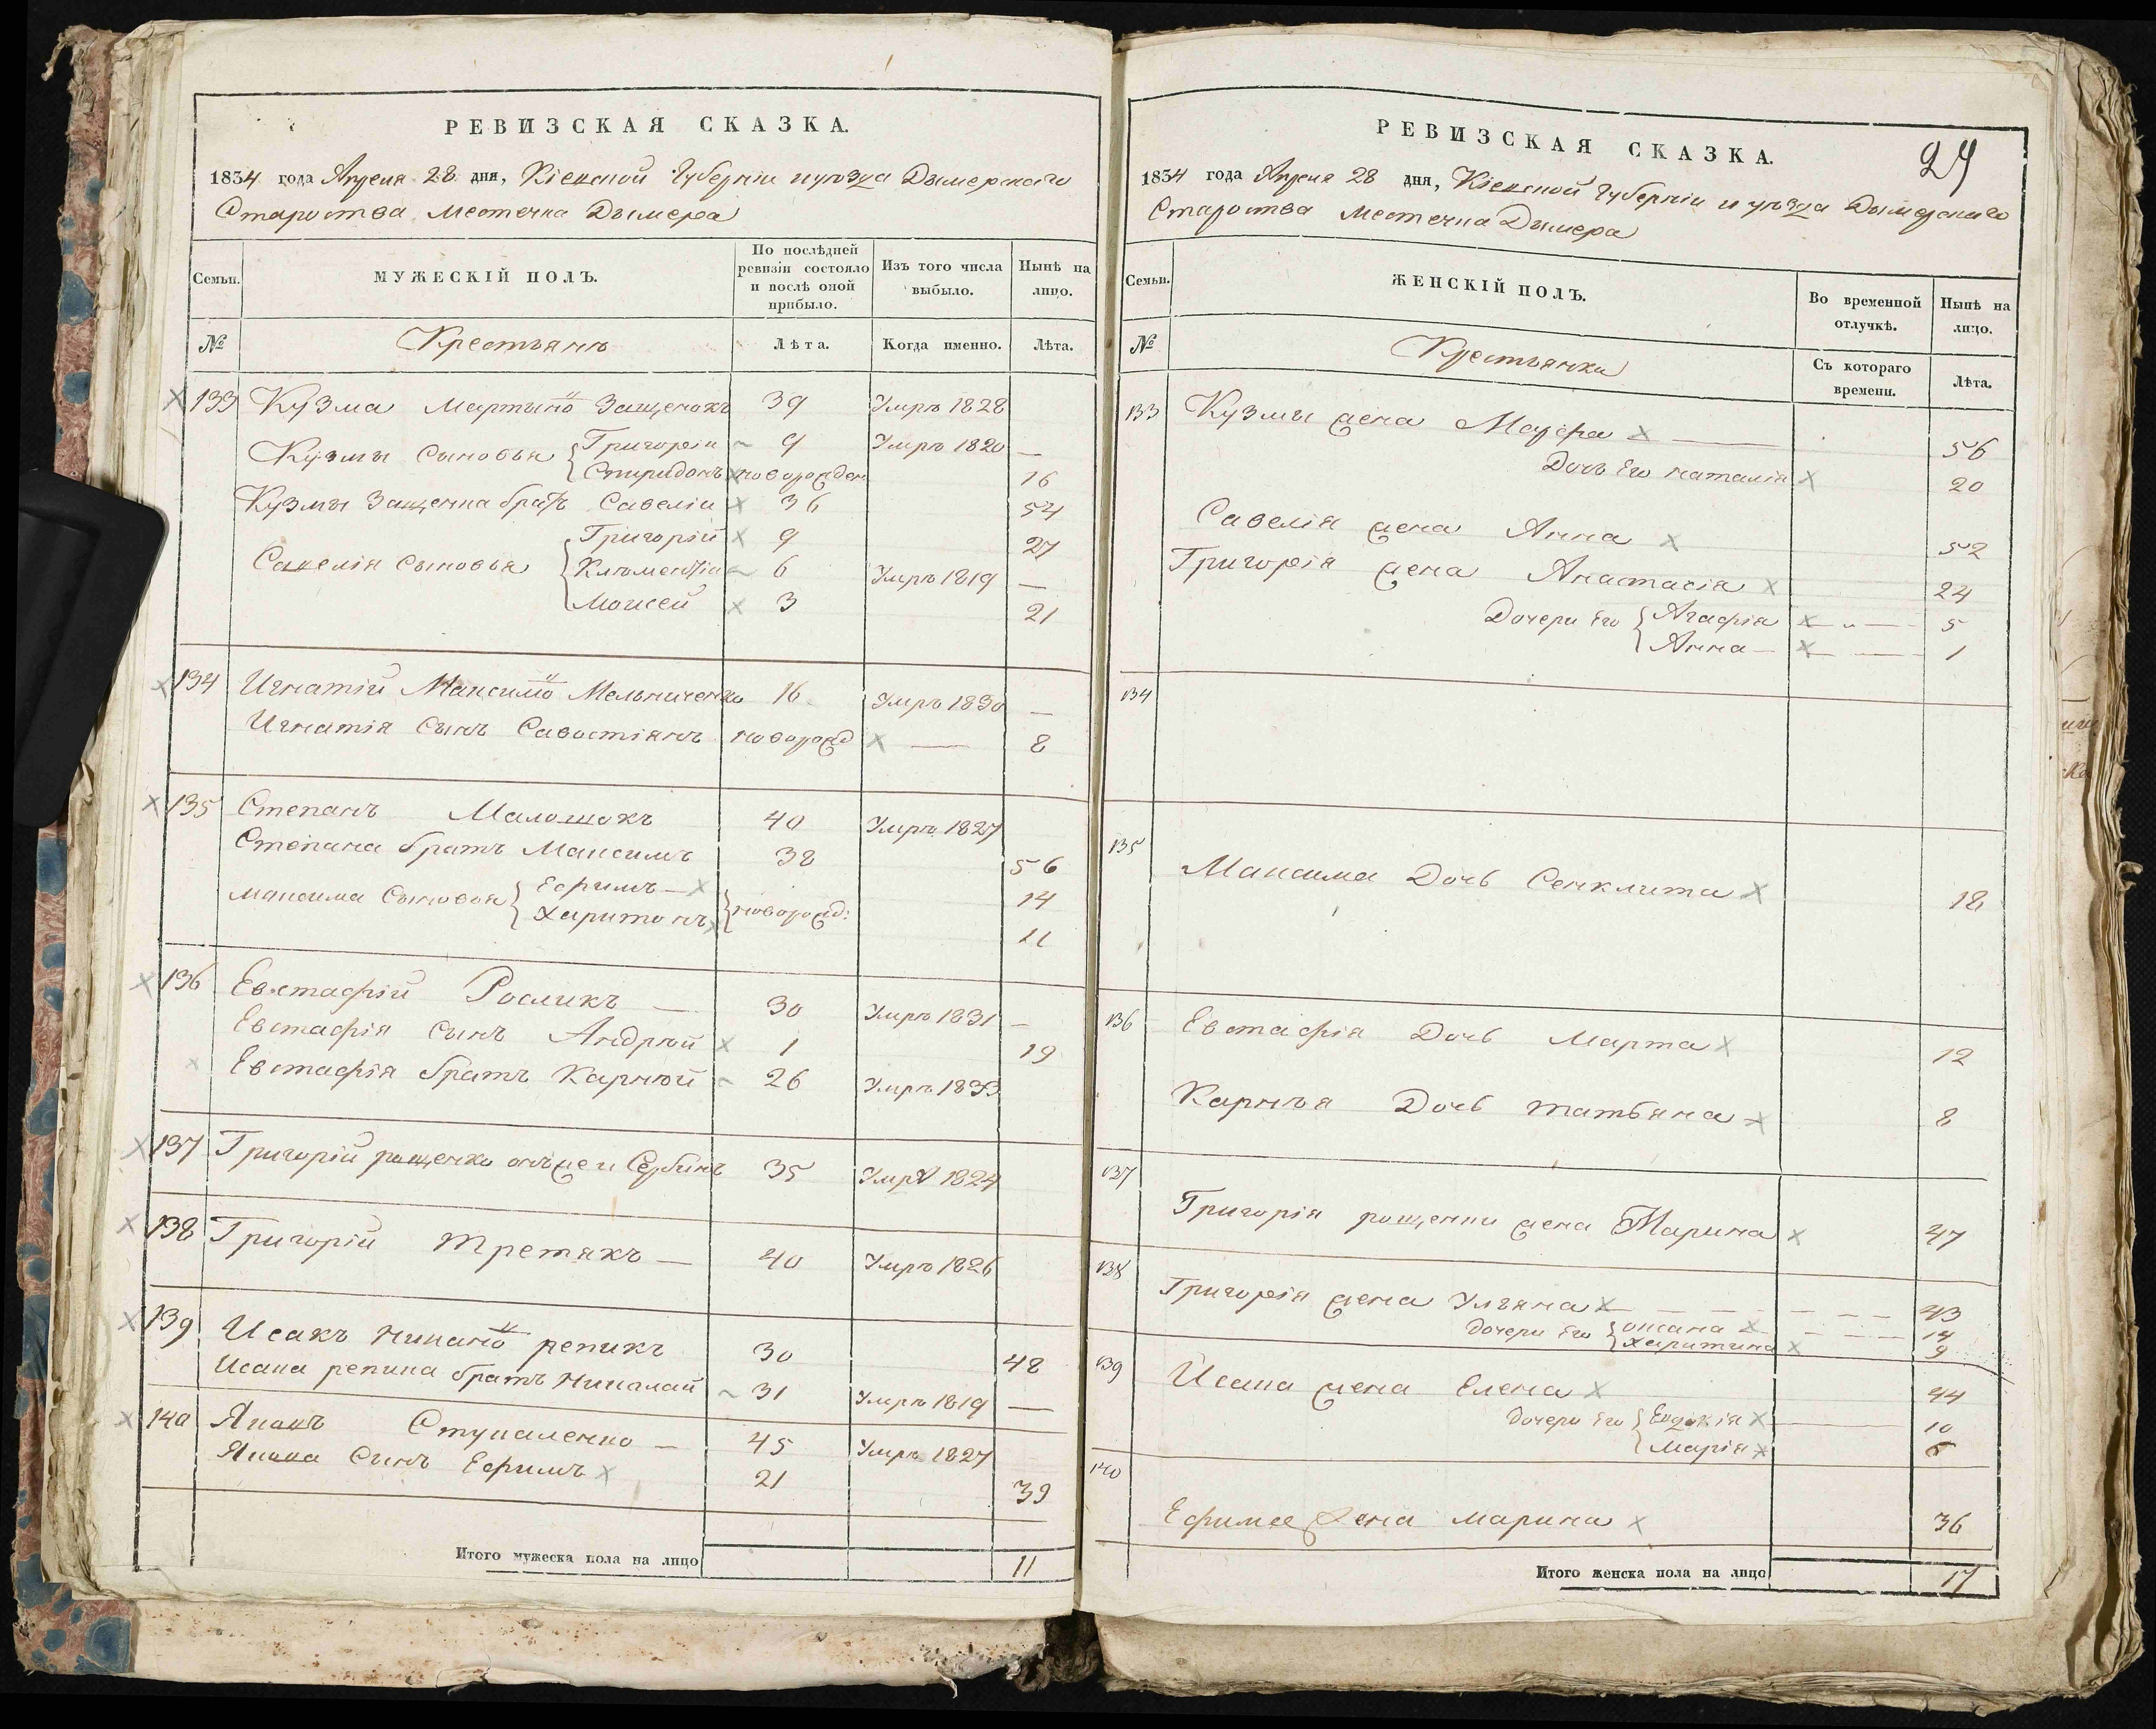 РЕВИЗСКАЯ СКАЗКА.
1834 года Апреля 28 дня, Кіевской Губерніи и уезда Дымерскаго
Староства Местечка Дымера
Семьи. МУЖЕСКІЙ ПОЛЪ. По послѣдней ревизіи состояло и послѣ оной прибыло. Изъ того числа выбыло. Нынѣ на лицо.
№ Крестьянъ Лѣта. Когда именно. Лѣта.
133 Кузма Мартыно Защенокъ 39 Умръ 1828
Кузмы Сыновья Григорій 9 Умръ 1820 —
Спиридонъ новорожден 16
Кузмы Защенка братъ Савелій 36 54
Савелія Сыновья Григорій 9 27
Клъментій 6 Умръ 1819 —
Моисей 3 21
134 Игнатій Максимо Мельниченко 16 Умръ 1830 —
Игнатія Сынъ Савостіянъ новорожд — 8
135 Степанъ Малошокъ 40 Умръ 1827
Степана братъ Максимъ 38 56
Максима Сыновья Ефримъ 14
Харитонъ новорожд: 11
136 Евстафій Росликъ — 30 Умръ 1831 —
Евстафія Сынъ Андрѣй 1 19
Евстафія братъ Карнѣй 26 Умръ 1833
137 Григорій рощенко онъже и Сербинъ 35 Умръ 1824
138 Григорій Третякъ — 40 Умръ 1826
139 Исакъ Никано репикъ 30 48
Исака репика братъ Николай 31 Умръ 1819 —
140 Яковъ Ступаленко — 45 Умръ 1827
Якова Сынъ Ефримъ 21 39
Итого мужеска пола на лицо 11
РЕВИЗСКАЯ СКАЗКА.
29
1834 года Апреля 28 дня, Кіевской Губерніи и уезда Дымерскаго
Староства Местечка Дымера
Семьи. ЖЕНСКІЙ ПОЛЪ. Во временной отлучкѣ. Нынѣ на лицо.
№ Крестьянки Съ котораго времени. Лѣта.
133 Кузмы жена Марфа — 56
Дочь Его наталія 20
Савелія жена Анна 52
Григорія жена Анастасія 24
Дочери Его Агафія 5
Анна 1
134
135 Максима Дочь Сенклита 18
136 Евстафія Дочь Марта 12
Карнѣя Дочь татьяна 8
137
Григорія рощенки жена Марина 47
138 Григорія жена Ульяна 43
дочери Его оксана 14
харитина 9
139 Исака жена Елена 44
дочери Его Евдокія 10
Марія 6
140
Ефима жена Марина 36
Итого женска пола на лицо 17